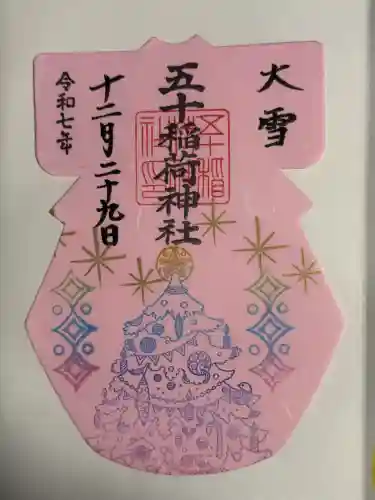 大雪
五十稲荷神社
五十稲荷社印
令和七年
十二月二十九日